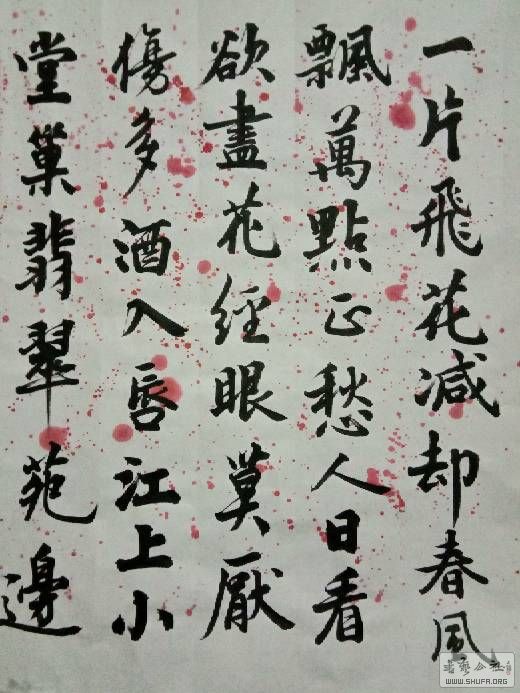 一片飛花减却春風
飄萬點正愁人日看
欲盡花經眼莫厭
傷多酒入唇江上小
堂巢翡翠苑邊
書藝公社
WWW.SHUFA.ORG